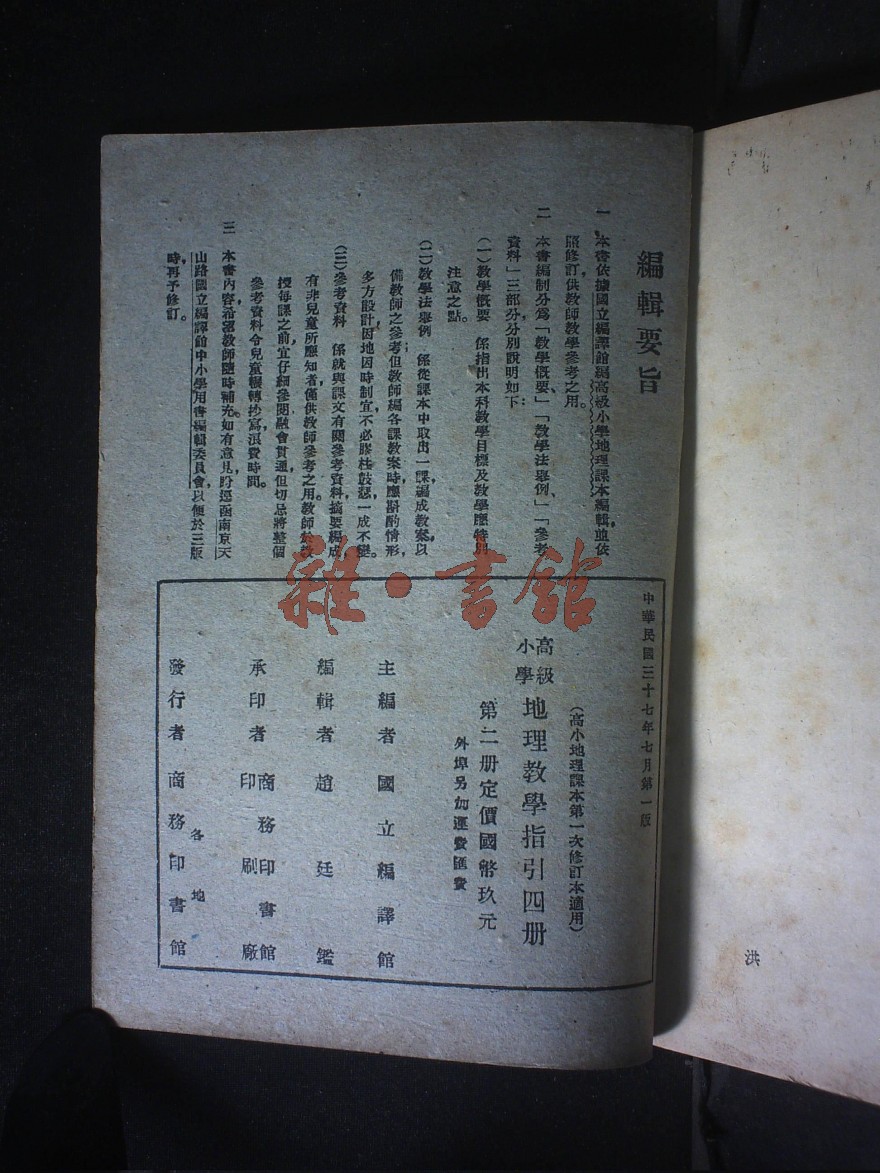 編輯要旨
一 本書依據國立編譯館編高級小學地理課本編輯並依
照修訂供教師教學參考之用。
二 本書編制分爲「教學概要」、「教學法舉例」、「參考
資料」三部分分別說明如下:
(一)教學概要 係指出本科教學目標及教學應特別
注意之點。
(二)教學法舉例 係從課本中取出一課編成教案以
備教師之參考但教師編各課教案時應斟酌情形,
多方設計因地因時制宜不必膠柱鼓瑟,一成不變。
(三)參考資料 係就與課文有關參考資料,摘要編成,
有非兒童所應知者,僅供教師參考之用。教師於教
授每課之前宜仔細參閱融會貫通但切忌將整個
參考資料令兒童輾轉抄寫浪費時間。
三 本書內容希望教師隨時補充。如有意見盼逕函南京天
山路國立編譯館中小學用書編輯委員會,以便於三版
時再予修訂。
中華民國三十七年七月第一版
(高小地理課本第一次修訂本適用)
高級小學地理教學指引四册
第二册定價國幣玖元
外埠另加運費匯費
主編者 國立編譯館
編輯者 趙廷鑑
承印者 商務印書館印刷廠
發行者 各地商務印書館
雜·書館
洪